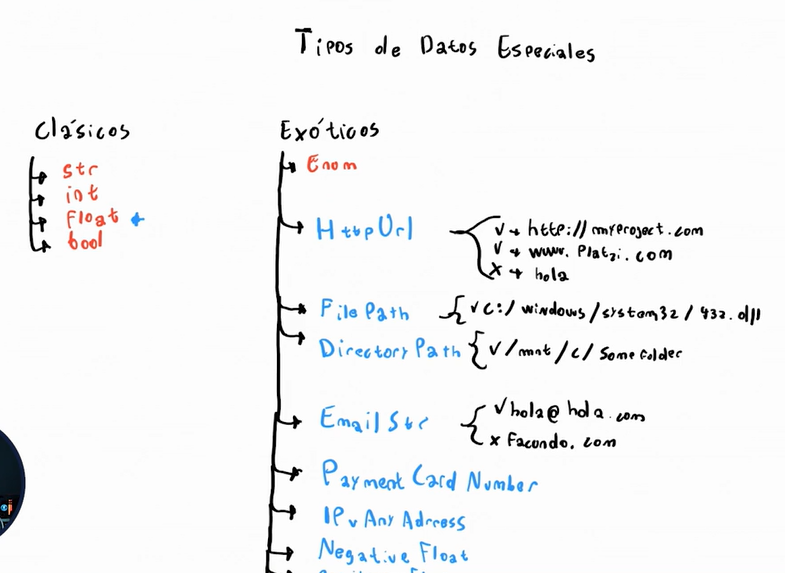 Tipos de Datos Especiales
Clásicos
str
int
Float
bool
Exóticos
Enum
HttpUrl
✓ → http://myproject.com
✓ → www.Platzi.com
x → hola
FilePath
✓ c:/windows/system32/432.dll
DirectoryPath
✓ /mnt/c/Somefolder
EmailStr
✓ hola@hola.com
x Facundo.com
Payment Card Number
IPvAnyAddress
Negative Float